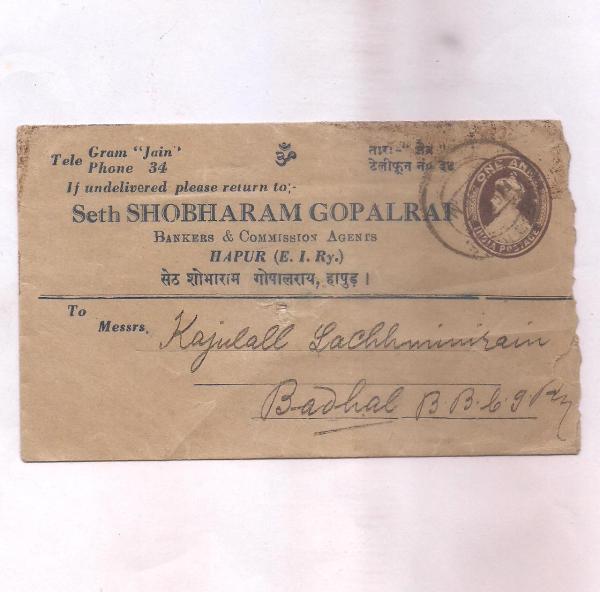 Tele Gram "Jain"
Phone 34
ॐ
तारः- "जैन"
टेलीफून नं० ३४
If undelivered please return to;-
Seth SHOBHARAM GOPALRAI
BANKERS & COMMISSION AGENTS
HAPUR (E. I. Ry.)
सेठ शोभाराम गोपालराय, हापुड़ ।
ONE AN
INDIA POSTAGE
To
Messrs.
Kajulall Lachhminirain
Badhal B.B.&.I.Ry